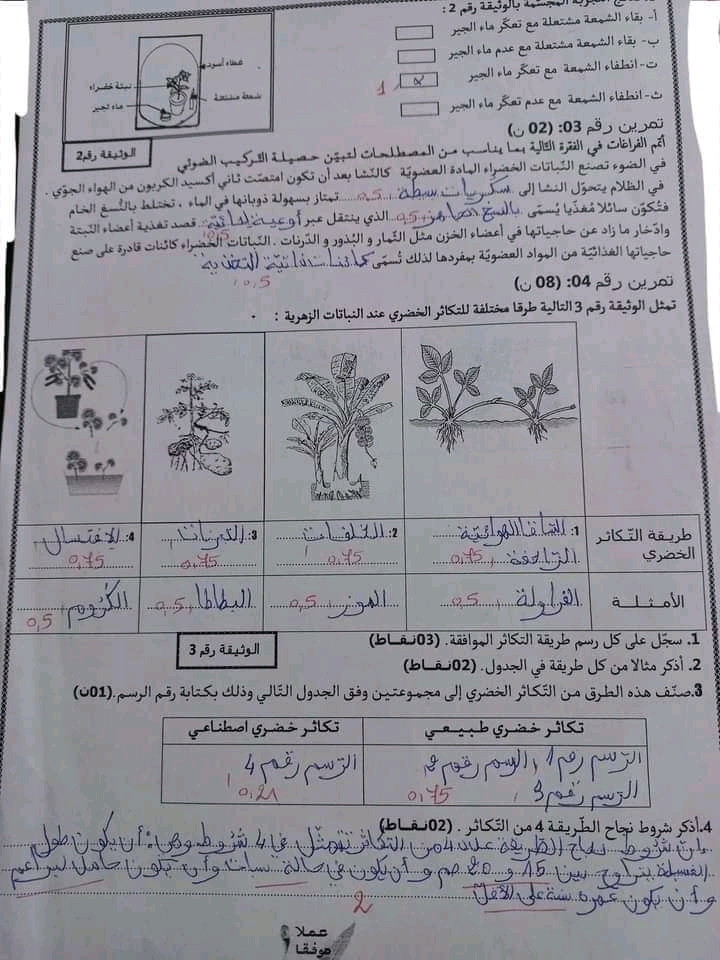 التجربة المجسّمة بالوثيقة رقم 2 :
أ- بقاء الشمعة مشتعلة مع تعكّر ماء الجير
ب- بقاء الشمعة مشتعلة مع عدم تعكّر ماء الجير
ت- انطفاء الشمعة مع تعكّر ماء الجير x 1
ث- انطفاء الشمعة مع عدم تعكّر ماء الجير
غطاء أسود
نبتة خضراء
شمعة مشتعلة
ماء الجير
الوثيقة رقم2
تمرين رقم 03: (02 ن)
أتمّ الفراغات في الفقرة التالية بما يناسب من المصطلحات لتبيّن حصيلة التركيب الضوئي
في الضوء تصنع النّباتات الخضراء المادة العضويّة كالنّشا بعد أن تكون امتصّت ثاني أكسيد الكربون من الهواء الجوّي .
في الظلام يتحوّل النشا إلى سكريات بسيطة 0,5 تمتاز بسهولة ذوبانها في الماء ، تختلط بالنُّسغ الخام
فتُكوّن سائلا مُغذّيا يُسمّى بالنسغ الجاهز 0,5 الذي ينتقل عبر أوعية لحائية 0,5 قصد تغذية أعضاء النّبتة
وادّخار ما زاد عن حاجياتها في أعضاء الخزن مثل الثّمار و البُذور و الدّرنات . النّباتات الخضراء كائنات قادرة على صنع
حاجياتها الغذائيّة من المواد العضويّة بمفردها لذلك تُسمّى كائنات ذاتيّة التغذية
0,5
تمرين رقم 04: (08 ن)
تمثل الوثيقة رقم 3 التالية طرقا مختلفة للتكاثر الخضري عند النباتات الزهرية :
طريقة التّكاثر الخضري
1: الساق الهوائيّة الزاحفة 0,75
2: الخلفات 0,75
3: الدرنات 0,75
4: الافتسال 0,75
الأمثلـة
الفراولة 0,5
الموز 0,5
البطاطا 0,5
الكروم 0,5
1. سجّل على كل رسم طريقة التكاثر الموافقة. (03نقـاط)
2. أذكر مثالا من كل طريقة في الجدول. (02نقـاط)
الوثيقة رقم 3
3.صنّف هذه الطرق من التّكاثر الخضري إلى مجموعتين وفق الجدول التّالي وذلك بكتابة رقم الرسم.(01ن)
تكاثر خضري طبيـعي
تكاثر خضري اصطناعـي
الرسم رقم 1 ، الرسم رقم 2
الرسم رقم 3 0,75
الرسم رقم 4
0,21
4.أذكر شروط نجاح الطّريقة 4 من التّكاثر . (02نقـاط)
إن شروط نجاح الطريقة عدد 4 من التكاثر تتمثّل في 4 شروط وهي: أن يكون طول
الفسيلة يتراوح بين 15 و 20 صم و أن يكون في حالة سبات وأن يكون حامل لبراعم
و أن يكون عمره سنة على الأقلّ
2
عملا
موفقا